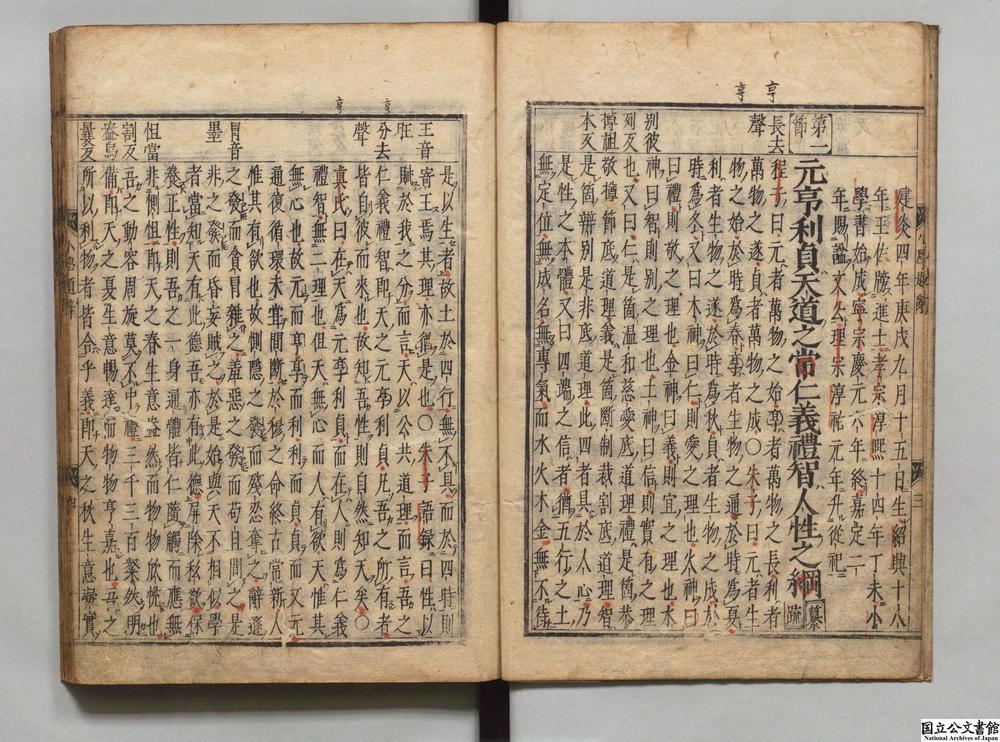 亨
亨
第一節
建炎四年庚戌九月十五日生紹興十八
年王佐牓進士孝宗淳熙十四年丁未小
學書始成寧宗慶元六年終嘉定二
年賜謚文公理宗淳祐元年升從祀
元亨利貞天道之常仁義禮智人性之綱
纂疏
長去聲
程子曰元者萬物之始亨者萬物之長利者
萬物之遂貞者萬物之成○朱子曰元者生
物之始於時爲春亨者生物之通於時爲夏
利者生物之遂於時爲秋貞者生物之成於
時爲冬又曰木神曰仁則愛之理也火神曰
曰禮則敬之理也金神曰義則宜之理也水
別彼列反
神曰智則別之理也土神曰信則實有之理
也又曰仁是箇溫和慈愛底道理禮是箇恭
敬撙節底道理義是箇斷制裁割底道理智
是箇辨別是非底道理此四者具於人心乃
是性之本體又曰四端之信者猶五行之土
無定位無成名無專氣而水火木金無不待
亨
亨
王音旺
是以生者故土於四行無不具而於四時則
寄王焉其理亦猶是也○朱子語錄曰性以
分去聲
賦於我之分而言天以公共道理而言吾之
仁義禮智即天之元亨利貞凡吾之所有者
皆自彼而來也故知吾性則自然知天矣○
真氏曰在天爲元亨利貞而在人則爲仁義
禮智無二理也但天無心而人有欲天惟其
無心也故元而亨亨而利利而貞貞而又元
通復循環未嘗間斷於穆之命終古常新人
惟其有欲也故惻隱之發而殘忍奪之辭遜
冒音墨
之發而貪冒雜之羞惡之發而苟且間之是
非之發而昏妄賊之於是始與天不相似學
者當知天有此德吾亦有此德屏除私欲保
養正性則吾之一身通體皆仁隨觸而應無
怛當割反
非惻怛即天之春生意盎然而物物欣悅也
吾之動容周旋莫不中禮三千三百粲然明
備即天之夏生意條暢達而嘉美也吾之
所以利物者皆合乎義即天之秋生意凝實
國立公文書館
National Archives of Japan